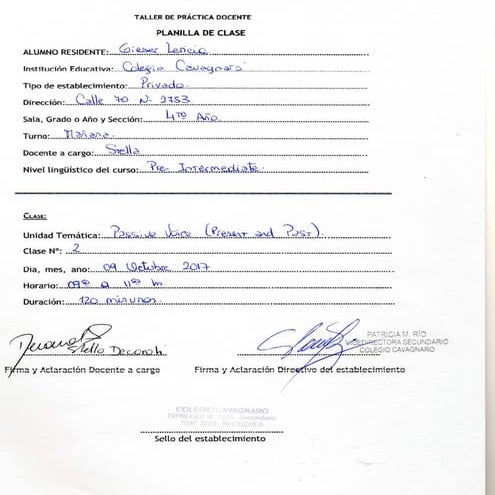 TALLER DE PRÁCTICA DOCENTE
PLANILLA DE CLASE
ALUMNO RESIDENTE: Gieser Lencia
Institución Educativa: Colegio Cavagnaro
Tipo de establecimiento: Privado.
Dirección: Calle 70 N- 2753
Sala, Grado o Año y Sección: 4TO Año
Turno: Mañana.
Docente a cargo: Stella
Nivel lingüístico del curso: Pre-Intermediate.
CLASE:
Unidad Temática: Passive Voice (Present and Past).
Clase N°: 2
Dia, mes, año: 09 Octubre 2017
Horario: 09ºº a 11ºº h
Duración: 120 minutos.
Stella
PATRICIA M. RÍO
VICEDIRECTORA SECUNDARIO
COLEGIO CAVAGNARO
Firma y Aclaración Docente a cargo Firma y Aclaración Directivo del establecimiento
COLEGIO CAVAGNARO
NECOCHEA
Sello del establecimiento